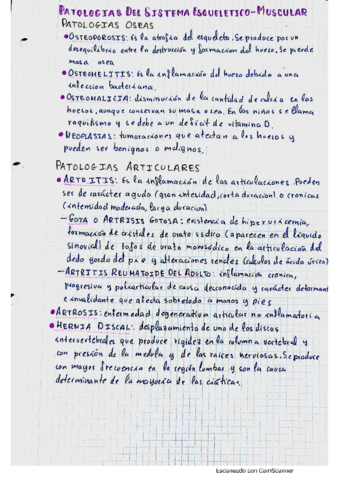 PATOLOGIAS DEL SISTEMA ESQUELETICO-MUSCULAR
PATOLOGIAS OSEAS
• OSTEOPOROSIS: Es la atrofia del esqueleto. Se produce por un
desequilibrio entre la destrucción y formacion del hueso. Se pierde
masa osea
• OSTEOMELITIS: Es la inflamación del hueso debido a una
infeccion bacteriana.
• OSTEOMALICIA: disminución de la cantidad de calcio en los
huesos, aunque conservan su masa osea. En los niños se llama
raquitismo y se debe a un deficit de vitamina D.
• NEOPLASIAS: tumoraciones que afectan a los huesos y
pueden ser benignos o malignos.
PATOLOGIAS ARTICULARES
• ARTRITIS: Es la inflamación de las articulaciones. Pueden
ser de carácter agudo (gran intesidad, corta duracion) o cronicas
(intensidad moderada, larga duracion)
- GOTA O ARTRISIS GOTOSA: existencia de hiperuricemia,
formación de cristales de urato sodico (aparecen en el líquido
sinovial) de tofos de urato monosódico en la articulación del
dedo gordo del pie y alteraciones renales (cálculos de ácido úrico)
- ARTRITIS REUMATOIDE DEL ADULTO: inflamación crónica,
progresiva y poliarticular de causa desconocida y carácter deformant
e invalidante que afecta sobretodo a manos y pies
• ARTROSIS: enfermedad degenerativa articular no inflamatoria
• HERNIA DISCAL: desplazamiento de uno de los discos
intervertebrales que produce rigidez en la columna vertebral y
con presión de la medula y de las raices nerviosas. Se produce
con mayor frecuencia en la región lumbar y son la causa
determinante de la mayoria de las ciáticas.
Escaneado con CamScanner